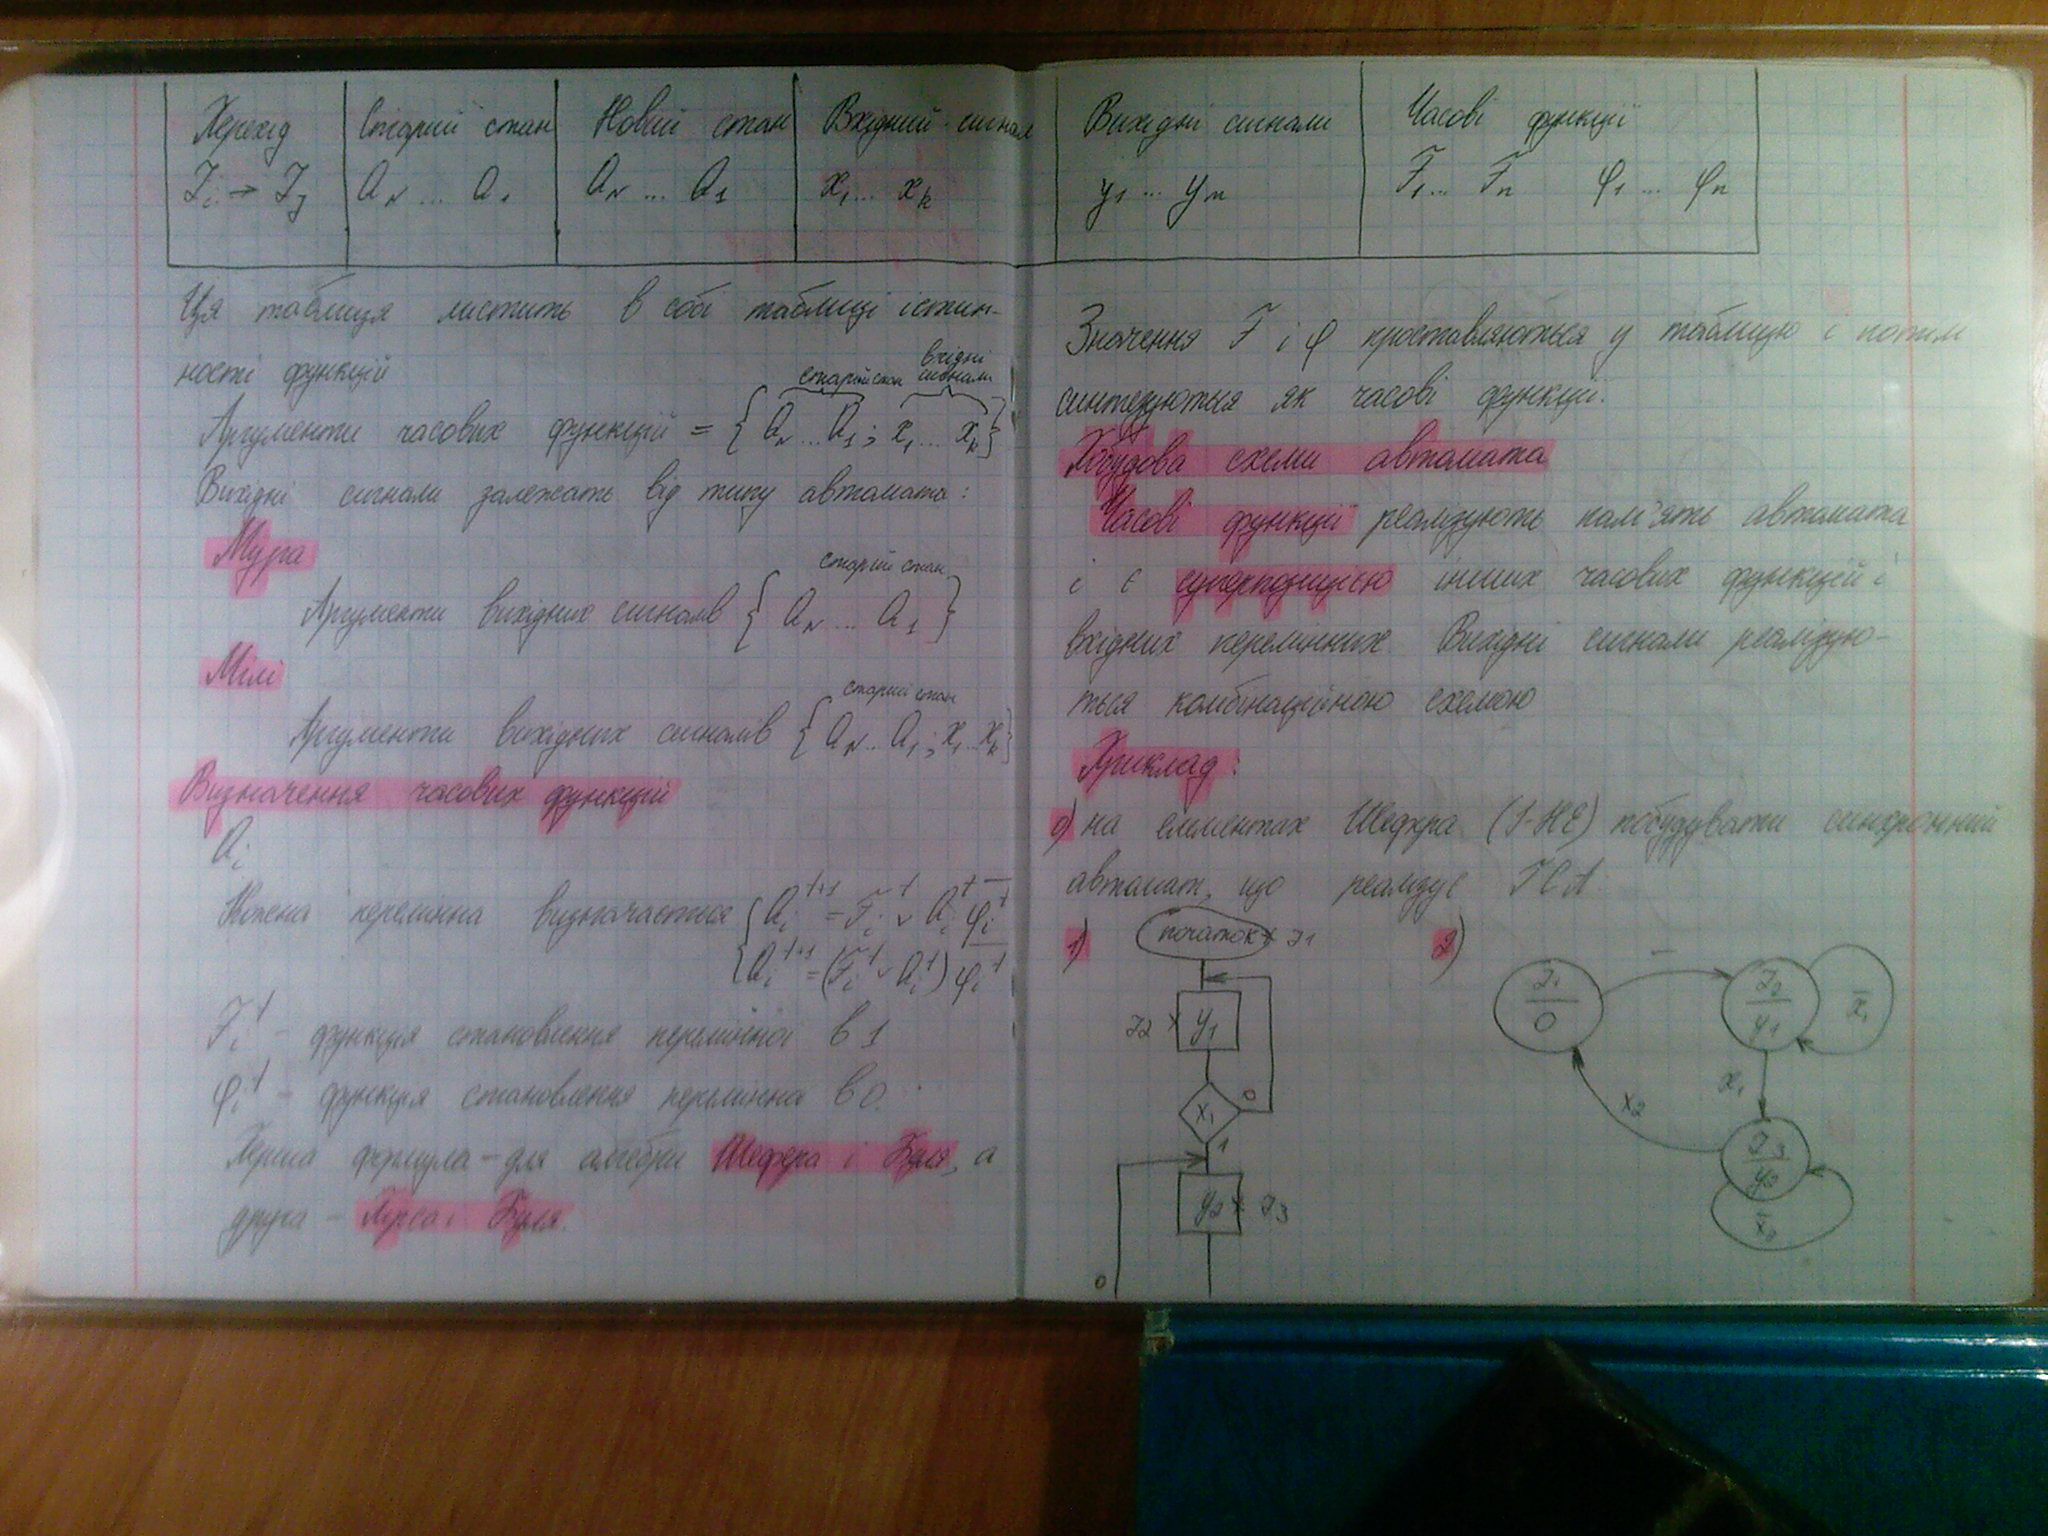 Перехід | Старий стан | Новий стан | Вхідний сигнал | Вихідні сигнали | Часові функції
Zi → Zj | aN ... a1 | aN ... a1 | x1 ... xk | y1 ... ym | F1 ... Fn φ1 ... φn
Ця таблиця містить в собі таблиці істин-
ності функцій
старий стан вхідні сигнали
Аргументи часових функцій = {aN ... a1; x1 ... xk}
Вихідні сигнали залежать від типу автомата:
Мура
старий стан
Аргументи вихідних сигналів {aN ... a1}
Мілі
старий стан
Аргументи вихідних сигналів {aN ... a1; x1 ... xk}
Визначення часових функцій
ai
Кожена перемінна визначається { ai^t+1 = Fi^t ∨ ai^t φ̄i^t
{ ai^t+1 = (Fi^t ∨ ai^t) φ̄i^t
Fi^t - функція становлення перемінної в 1
φi^t - функція становлення перемінна в 0.
Перша формула - для алгебри Шефера і Буля, а
друга - Пірса і Буля.
Значення F і φ проставляються у таблицю і потім
синтезуються як часові функції.
Побудова схеми автомата
Часові функції реалізують пам'ять автомата
і є суперпозицією інших часових функцій і
вхідних перемінних. Вихідні сигнали реалізую-
ться комбінаційною схемою
Приклад:
0) на елементах Шефера (І-НЕ) побудувати синхронний
автомат, що реалізує ГСА.
1) початок x Z1
Z2 x y1
x1 0
1
y2 x Z3
0
2) Z1
0
-
Z2
y1
x̄1
x1
x2
Z3
y2
x̄2